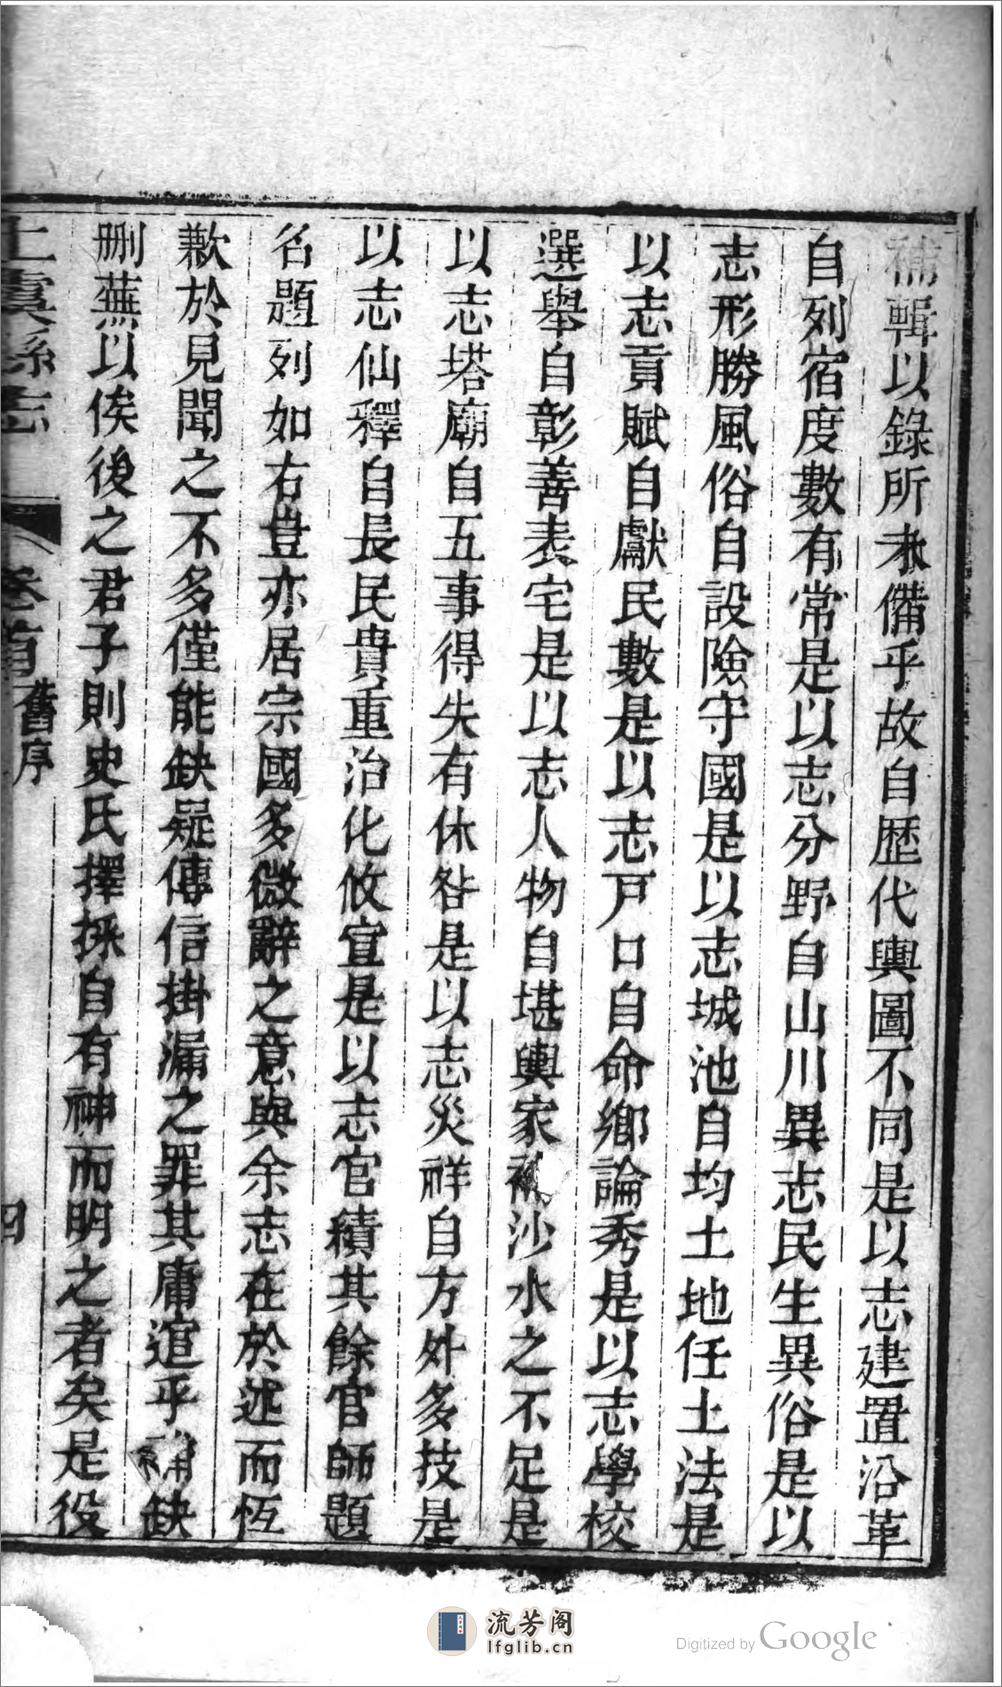 補輯以錄所未備乎故自歷代輿圖不同是以志建置沿革
自列宿度數有常是以志分野自山川異志民生異俗是以
志形勝風俗自設險守國是以志城池自均土地任土法是
以志貢賦自獻民數是以志戸口自命鄉論秀是以志學校
選舉自彰善表宅是以志人物自堪輿家補沙水之不足是
以志塔廟自五事得失有休咎是以志災祥自方外多技是
以志仙釋自長民貴重治化攸宣是以志官績其餘官師題
名題列如右豈亦居宗國多微辭之意與余志在於述而恆
歉於見聞之不多僅能缺疑傳信掛漏之罪其庸逭乎補缺
刪蕪以俟後之君子則史氏擇採自有神而明之者矣是役
上虞縣志
卷首
舊序
四
流芳阁
lfglib.cn
Digitized by Google